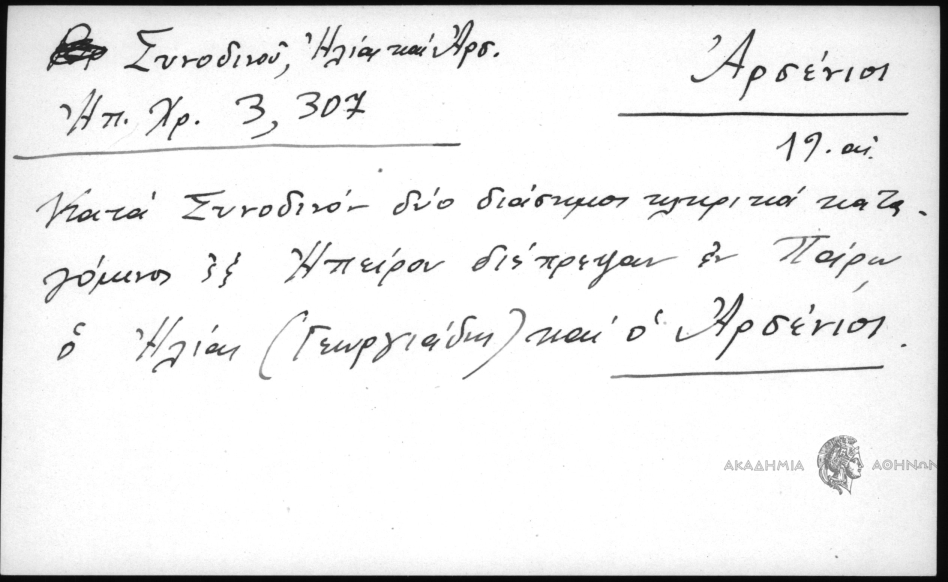 Συνοδινοῦ, Ἠλίας καὶ Ἀρσ.
Ἠπ. Χρ. 3, 307
Ἀρσένιος
19. αἰ.
Κατὰ Συνοδινόν δύο διάσημοι κληρικοὶ κατα-
γόμενοι ἐξ Ἠπείρου διέπρεψαν ἐν Πάρῳ
ὁ Ἠλίας (Γεωργιάδης) καὶ ὁ Ἀρσένιος.
ΑΚΑΔΗΜΙΑ ΑΘΗΝΩΝ